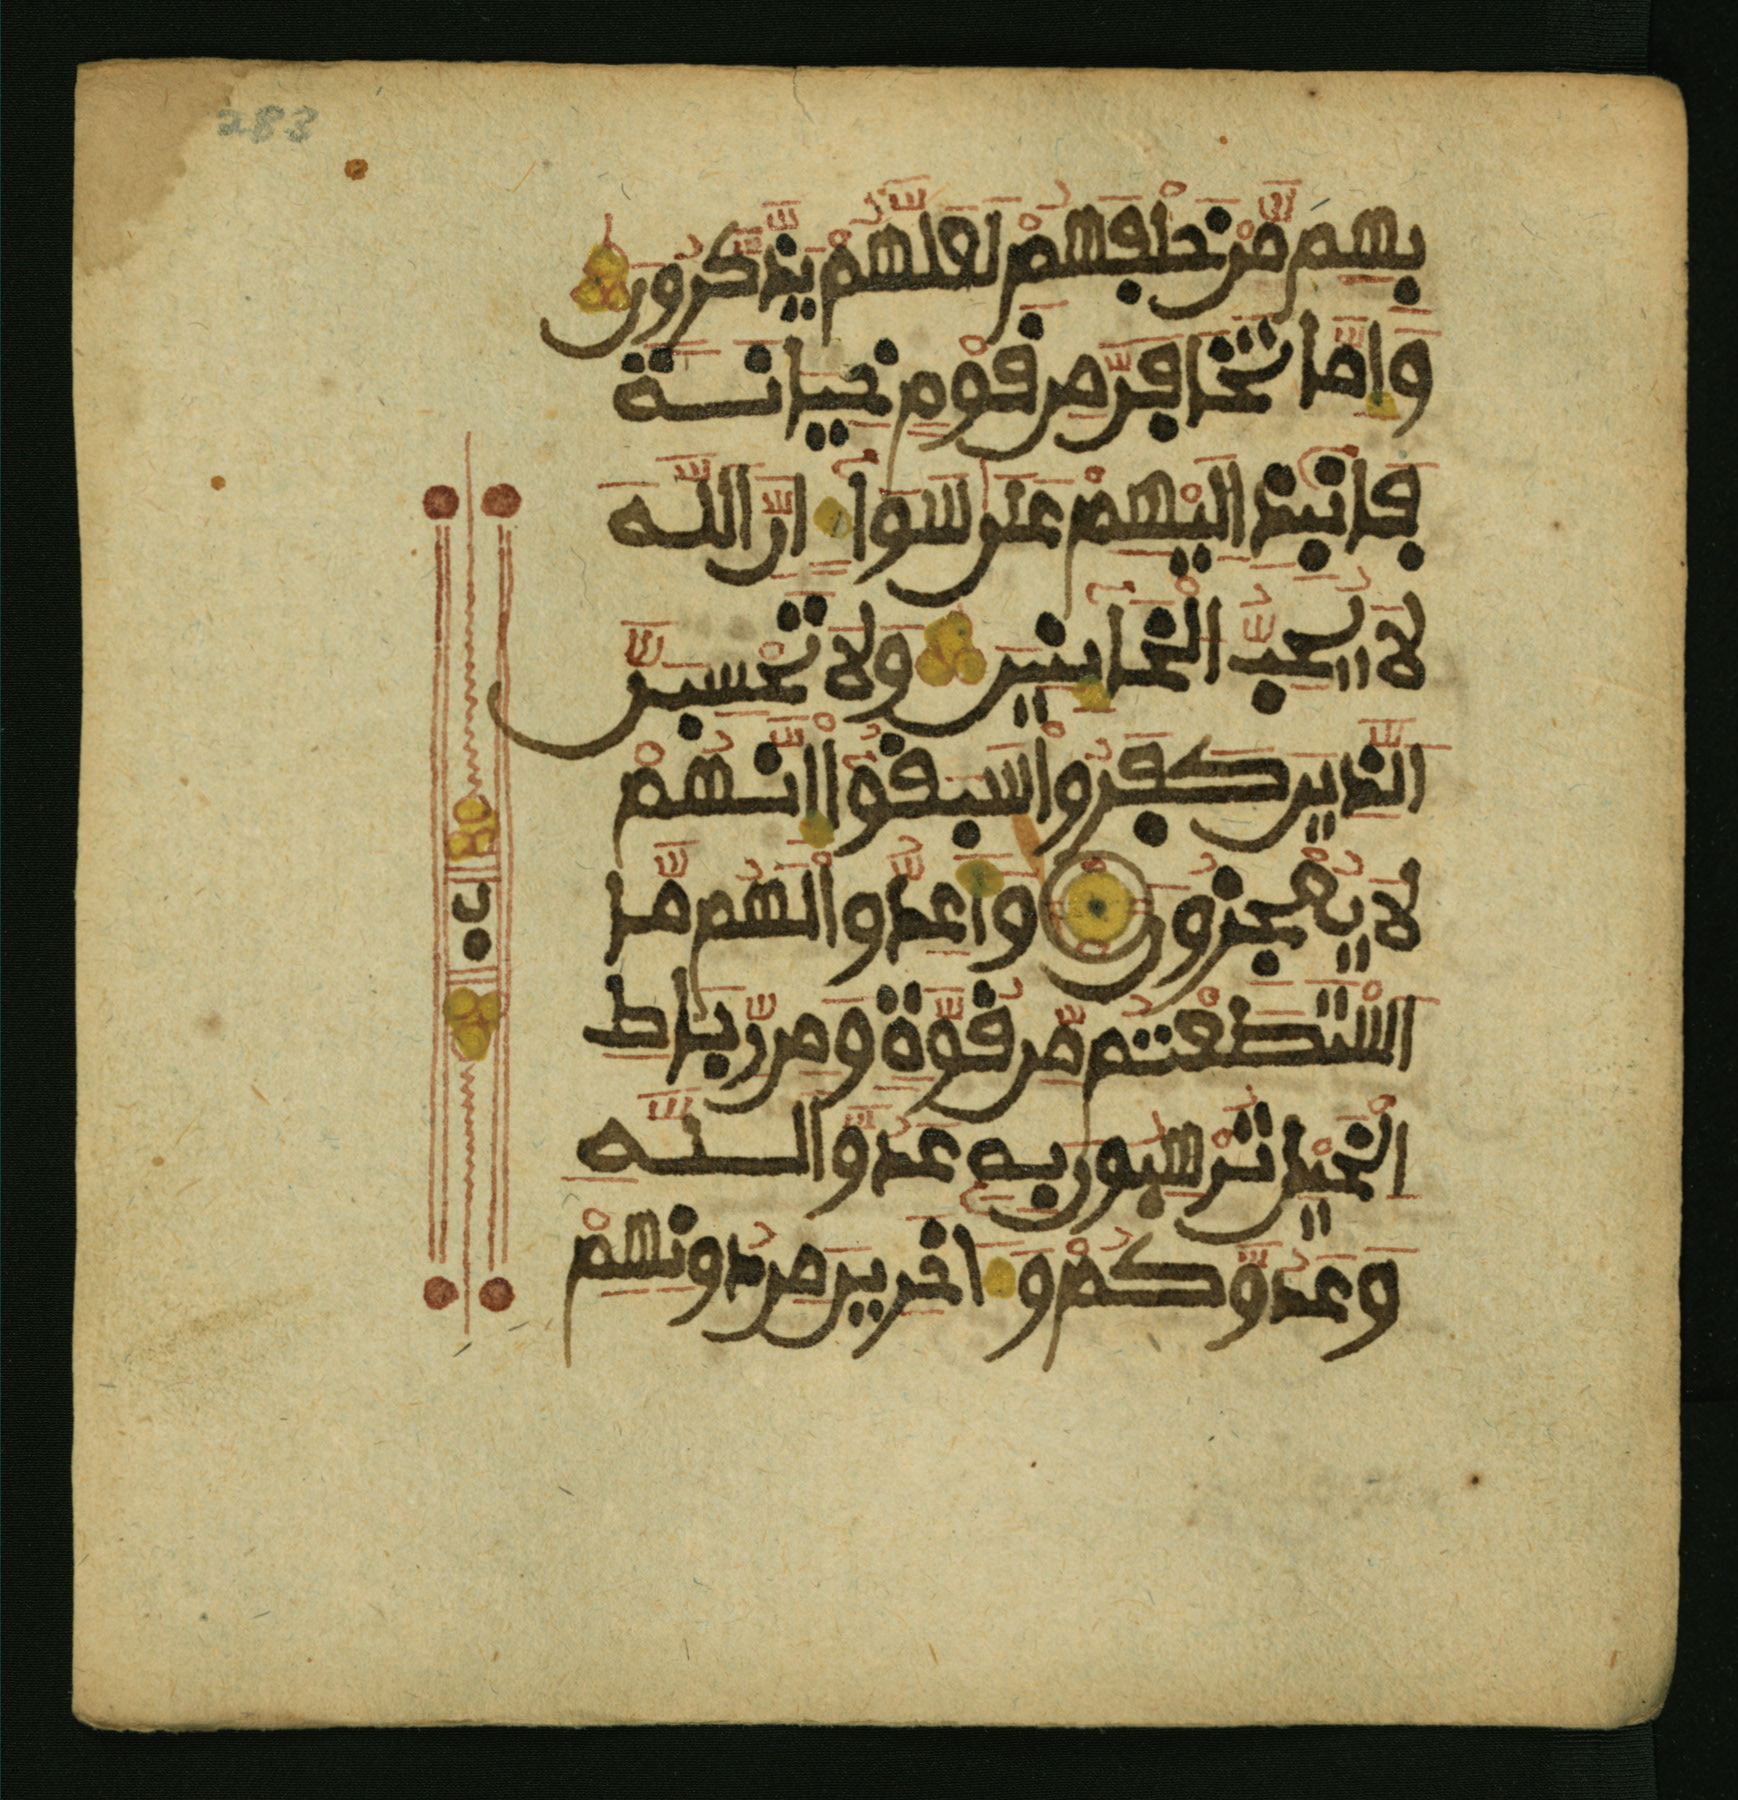 283
بهم من خلفهم لعلهم يذكرون
واما تخافن من قوم خيانة
فانبذ اليهم على سوا ان الله
لا يحب الخاينين ولا تحسبن
الذين كفروا سبقوا انهم
لا يعجزون واعدوا لهم ما
استطعتم من قوة ومن رباط
الخيل ترهبون به عدو الله
وعدوكم واخرين من دونهم